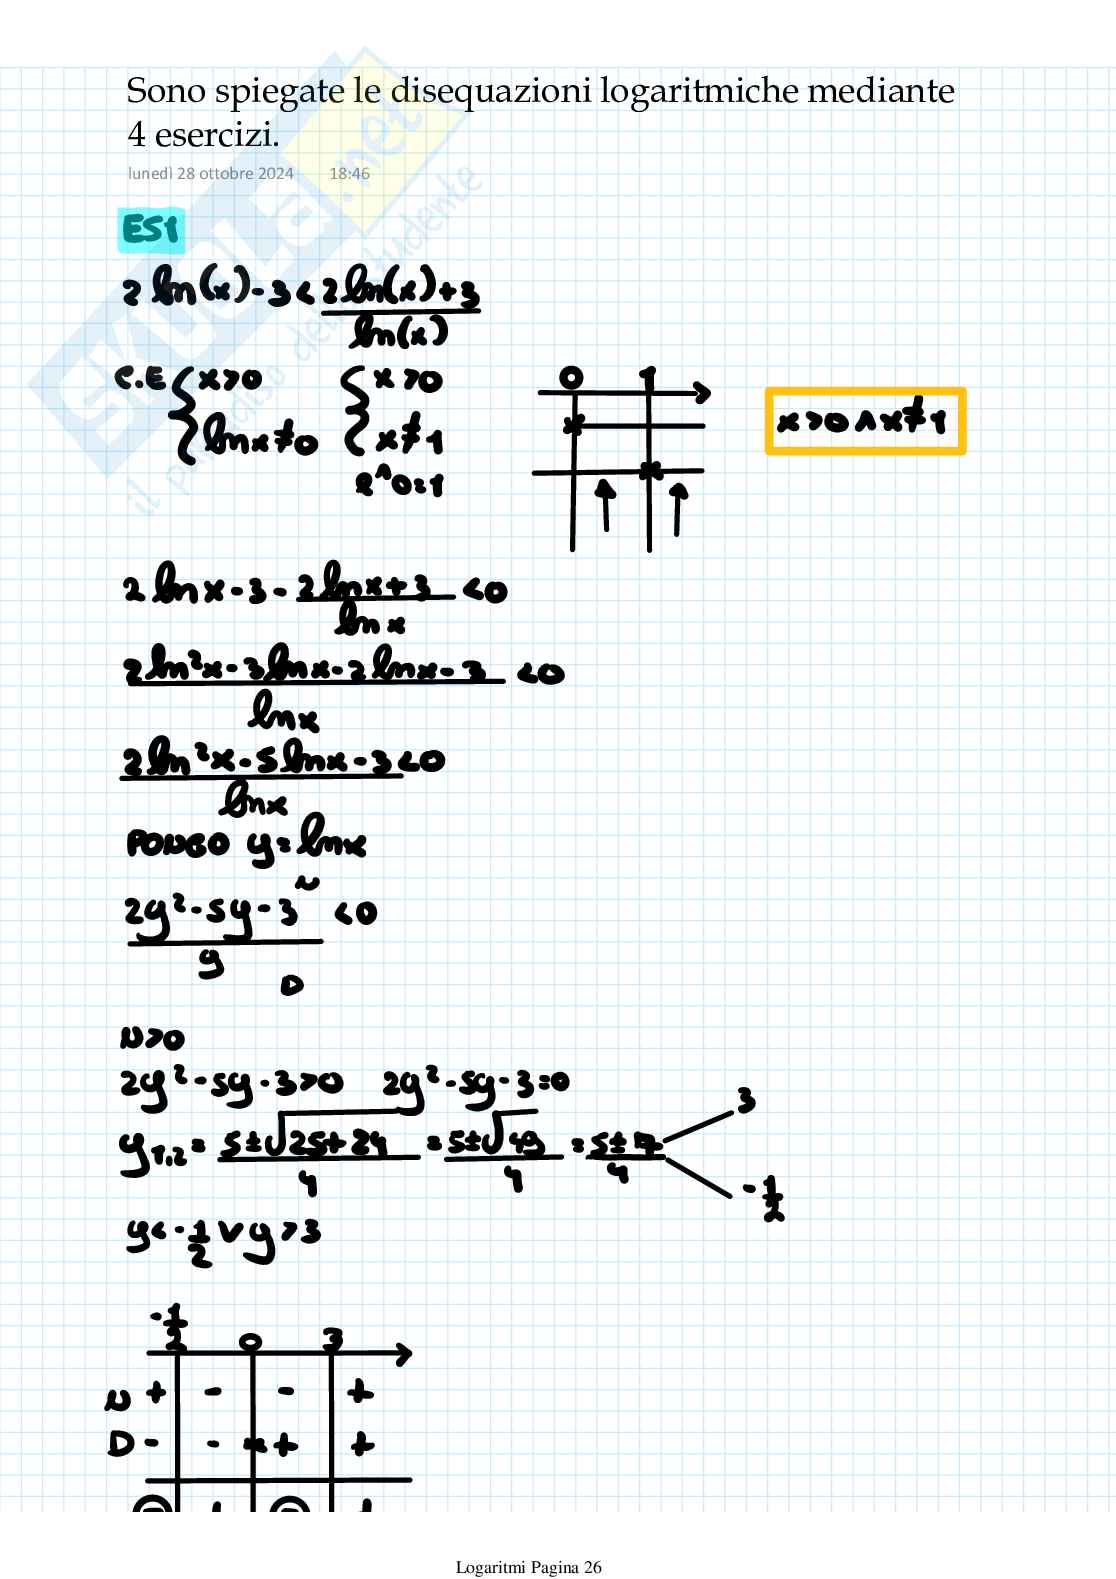 Sono spiegate le disequazioni logaritmiche mediante
4 esercizi.
lunedì 28 ottobre 2024 18:46
SKUOLA.net
il paradiso dello studente
ES1
2 ln(x) - 3 < (2 ln(x) + 3)/ln(x)
C.E { x > 0 { x > 0
ln x ≠ 0 x ≠ 1
e^0 = 1
0 1
x > 0 ∧ x ≠ 1
2 ln x - 3 - (2 ln x + 3)/ln x < 0
(2 ln²x - 3 ln x - 2 ln x - 3)/ln x < 0
(2 ln²x - 5 ln x - 3)/ln x < 0
PONGO y = ln x
N
(2y² - 5y - 3)/y < 0
D
N > 0
2y² - 5y - 3 > 0 2y² - 5y - 3 = 0
y1,2 = (5 ± √(25 + 24))/4 = (5 ± √49)/4 = (5 ± 7)/4 3
-1/2
y < -1/2 ∨ y > 3
-1/2 0 3
N + - - +
D - - × + +
- + - +
Logaritmi Pagina 26